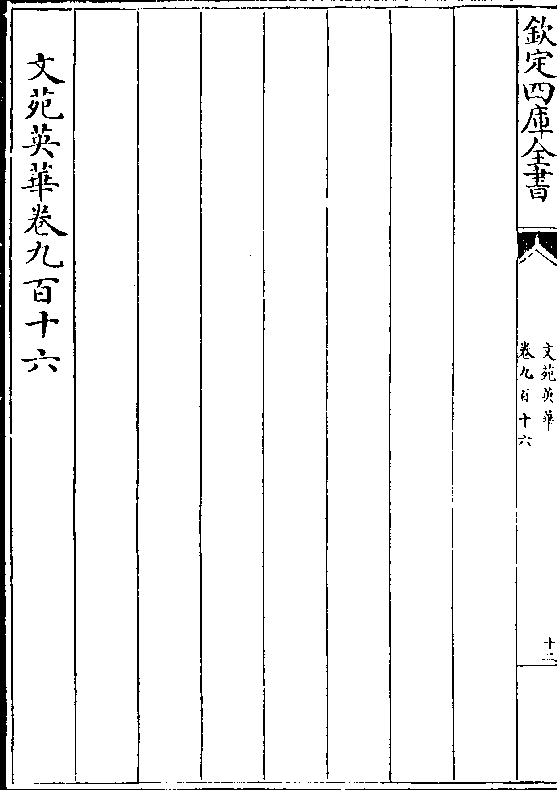 欽定四庫全書
文苑英華
卷九百十六
十二
文苑英華卷九百十六